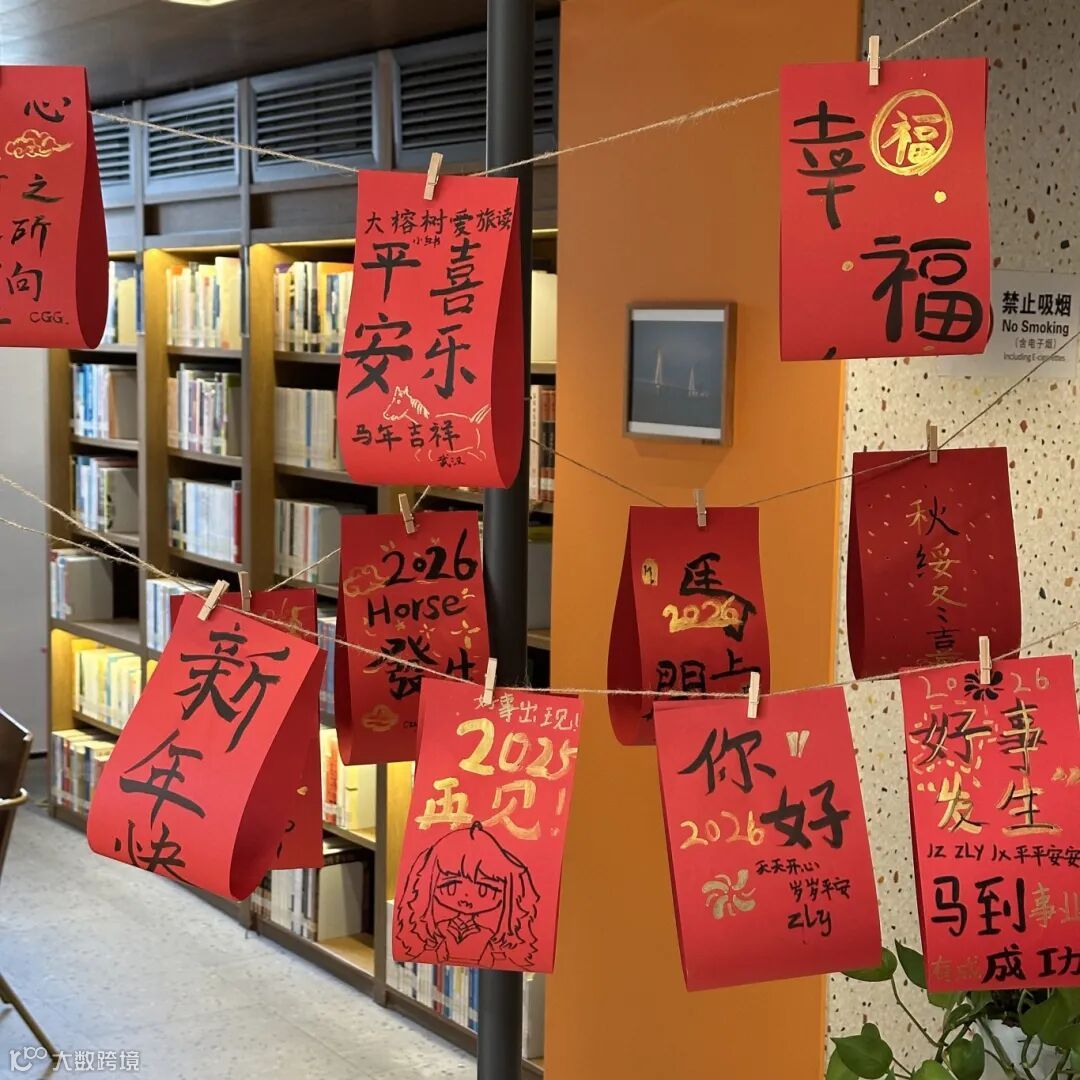 心
之
所
向
CGG.
大榕树爱旅读
小邱
平安
喜乐
马年吉祥
武汉
福
幸福
禁止吸烟
No Smoking
(含电子烟)
Including E-cigarettes
2026
Horse
發生
马
2026
秋绥冬喜
新年快
好事出现!
2025
再见!
你好
2026
天天开心
岁岁平安
ZLY
2026
好事
"发生"
JZ ZLY JX 平平安安
马到 事业
有成 成功
100 大数跨境